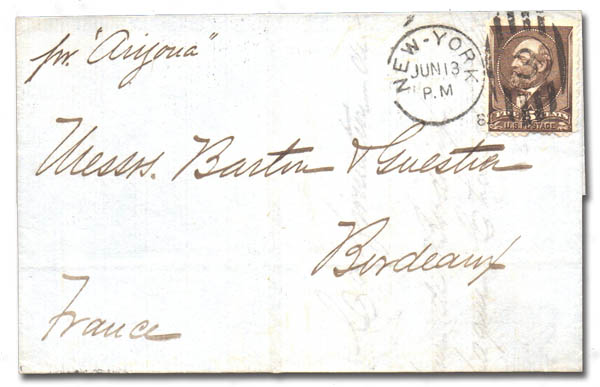 pr. "Arizona"
NEW-YORK
JUN 13
P.M
8
U.S. POSTAGE
Messrs. Barton & Guestier
Bordeaux
France